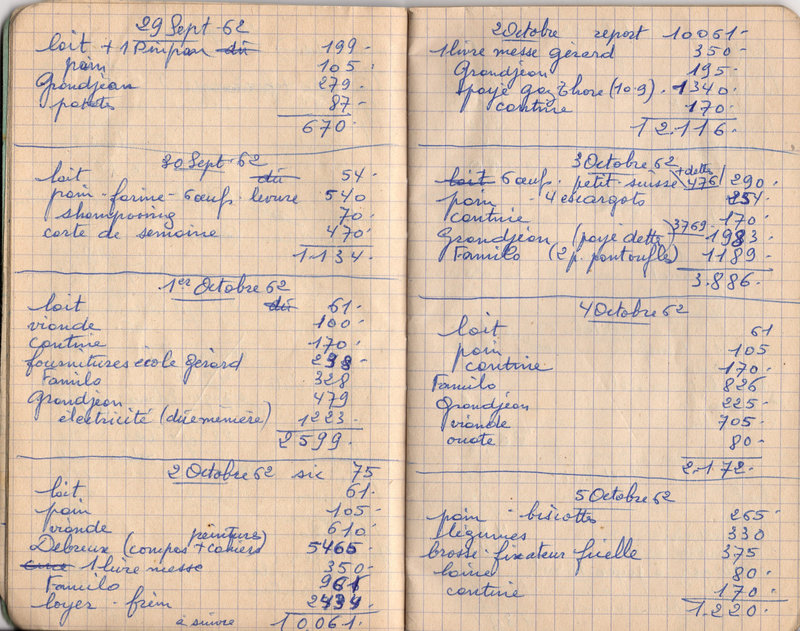 29 Sept 62
lait + 1 Pimpan dû 199-
pain 105.
Grandjean 279-
patates 87-
670.
30 Sept 62
lait dû 54-
pain - farine - 6 œufs levure 540
shampooing 70.
carte de semaine 470-
1134-
1er Octobre 62
lait dû 61-
viande 100-
cantine 170.
fournitures école gérard 298-
Familo 328
Grandjean 479
électricité (dû 1223-
2599-
2 Octobre 62 sic 75
lait 61.
pain 105-
viande 610
peinture)
Debreux (compas + cahiers 5465-
1 livre messe 350-
Familo 961
loyer - frem 2434.
à suivre 10061.
2 Octobre report 10061-
1 livre messe gerard 350-
Grandjean 195-
payé gaz Thore (10.9) . 1340-
cantine 170.
12.116.
3 Octobre 62
+ dette
lait 6 œufs . petit-suisse 476 290-
pain - 4 escargots 254-
cantine 170-
Grandjean (payé dette) 3769- 1983-
Familo (2 p. pantoufles) 1189-
3.886-
4 Octobre 62
lait 61
pain 105
cantine 170-
Familo 826
Grandjean 225-
viande 705-
ouate 80-
2.172-
5 Octobre 62
pain - biscottes 265-
légumes 330
brosse - fixateur ficelle 375
laine 80-
cantine 170-
1.220-